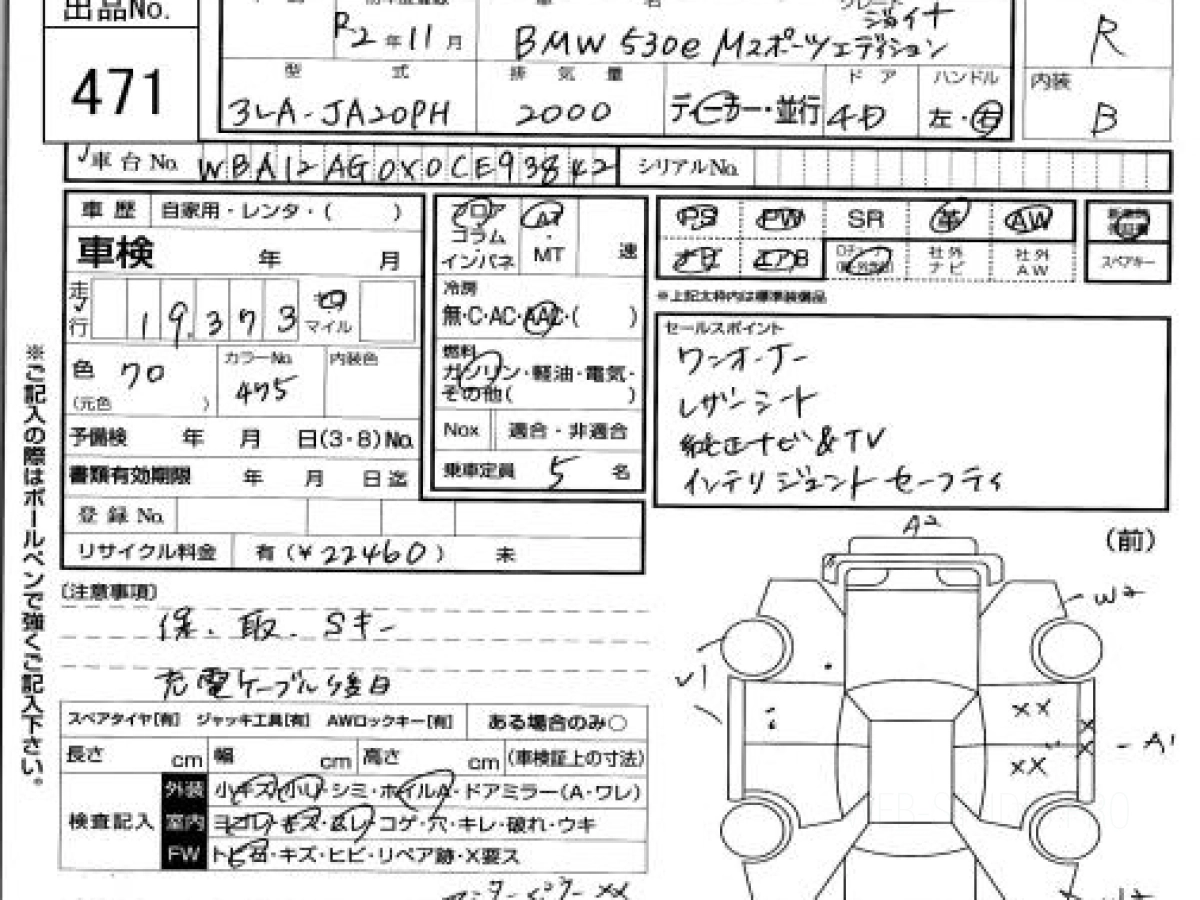 出品No.
471
R2年11月
BMW 530e Mスポーツエディション
ジョイナ
R
型式
3LA-JA20PH
排気量
2000
ディーラー・並行
ドア
4D
ハンドル
左・右
内装
B
車台No. WBA12AG0X0CE93842
シリアルNo.
車歴 自家用・レンタ・( )
車検 年 月
走行 19,373 キロ マイル
色 70
(元色 )
カラーNo. 475
内装色
予備検 年 月 日(3・8)No.
書類有効期限 年 月 日迄
登録No.
リサイクル料金 有(¥22460) 未
フロア
コラム
インパネ
AT
・
MT
速
冷房
無・C・AC・AAC・( )
燃料
ガソリン・軽油・電気・
その他( )
Nox 適合・非適合
乗車定員 5 名
PS PW SR 革 AW
ナビ エアB
社外ナビ
社外AW
スペアキー
※上記太枠内は標準装備品
セールスポイント
ワンオーナー
レザーシート
純正ナビ&TV
インテリジェントセーフティ
※ご記入の際はボールペンで強くご記入下さい。
(注意事項)
保、取、Sキー
充電ケーブル後日
スペアタイヤ[有] ジャッキ工具[有] AWロックキー[有] ある場合のみ○
長さ cm 幅 cm 高さ cm (車検証上の寸法)
検査記入
外装 小キズ・小U・シミ・ホイルA・ドアミラー(A・ワレ)
室内 ヨゴレ・キズ・スレ・コゲ・穴・キレ・破れ・ウキ
FW トビ石・キズ・ヒビ・リペア跡・X要ス
(前)
A2
W2
V1
XX
X
X
A1
XX